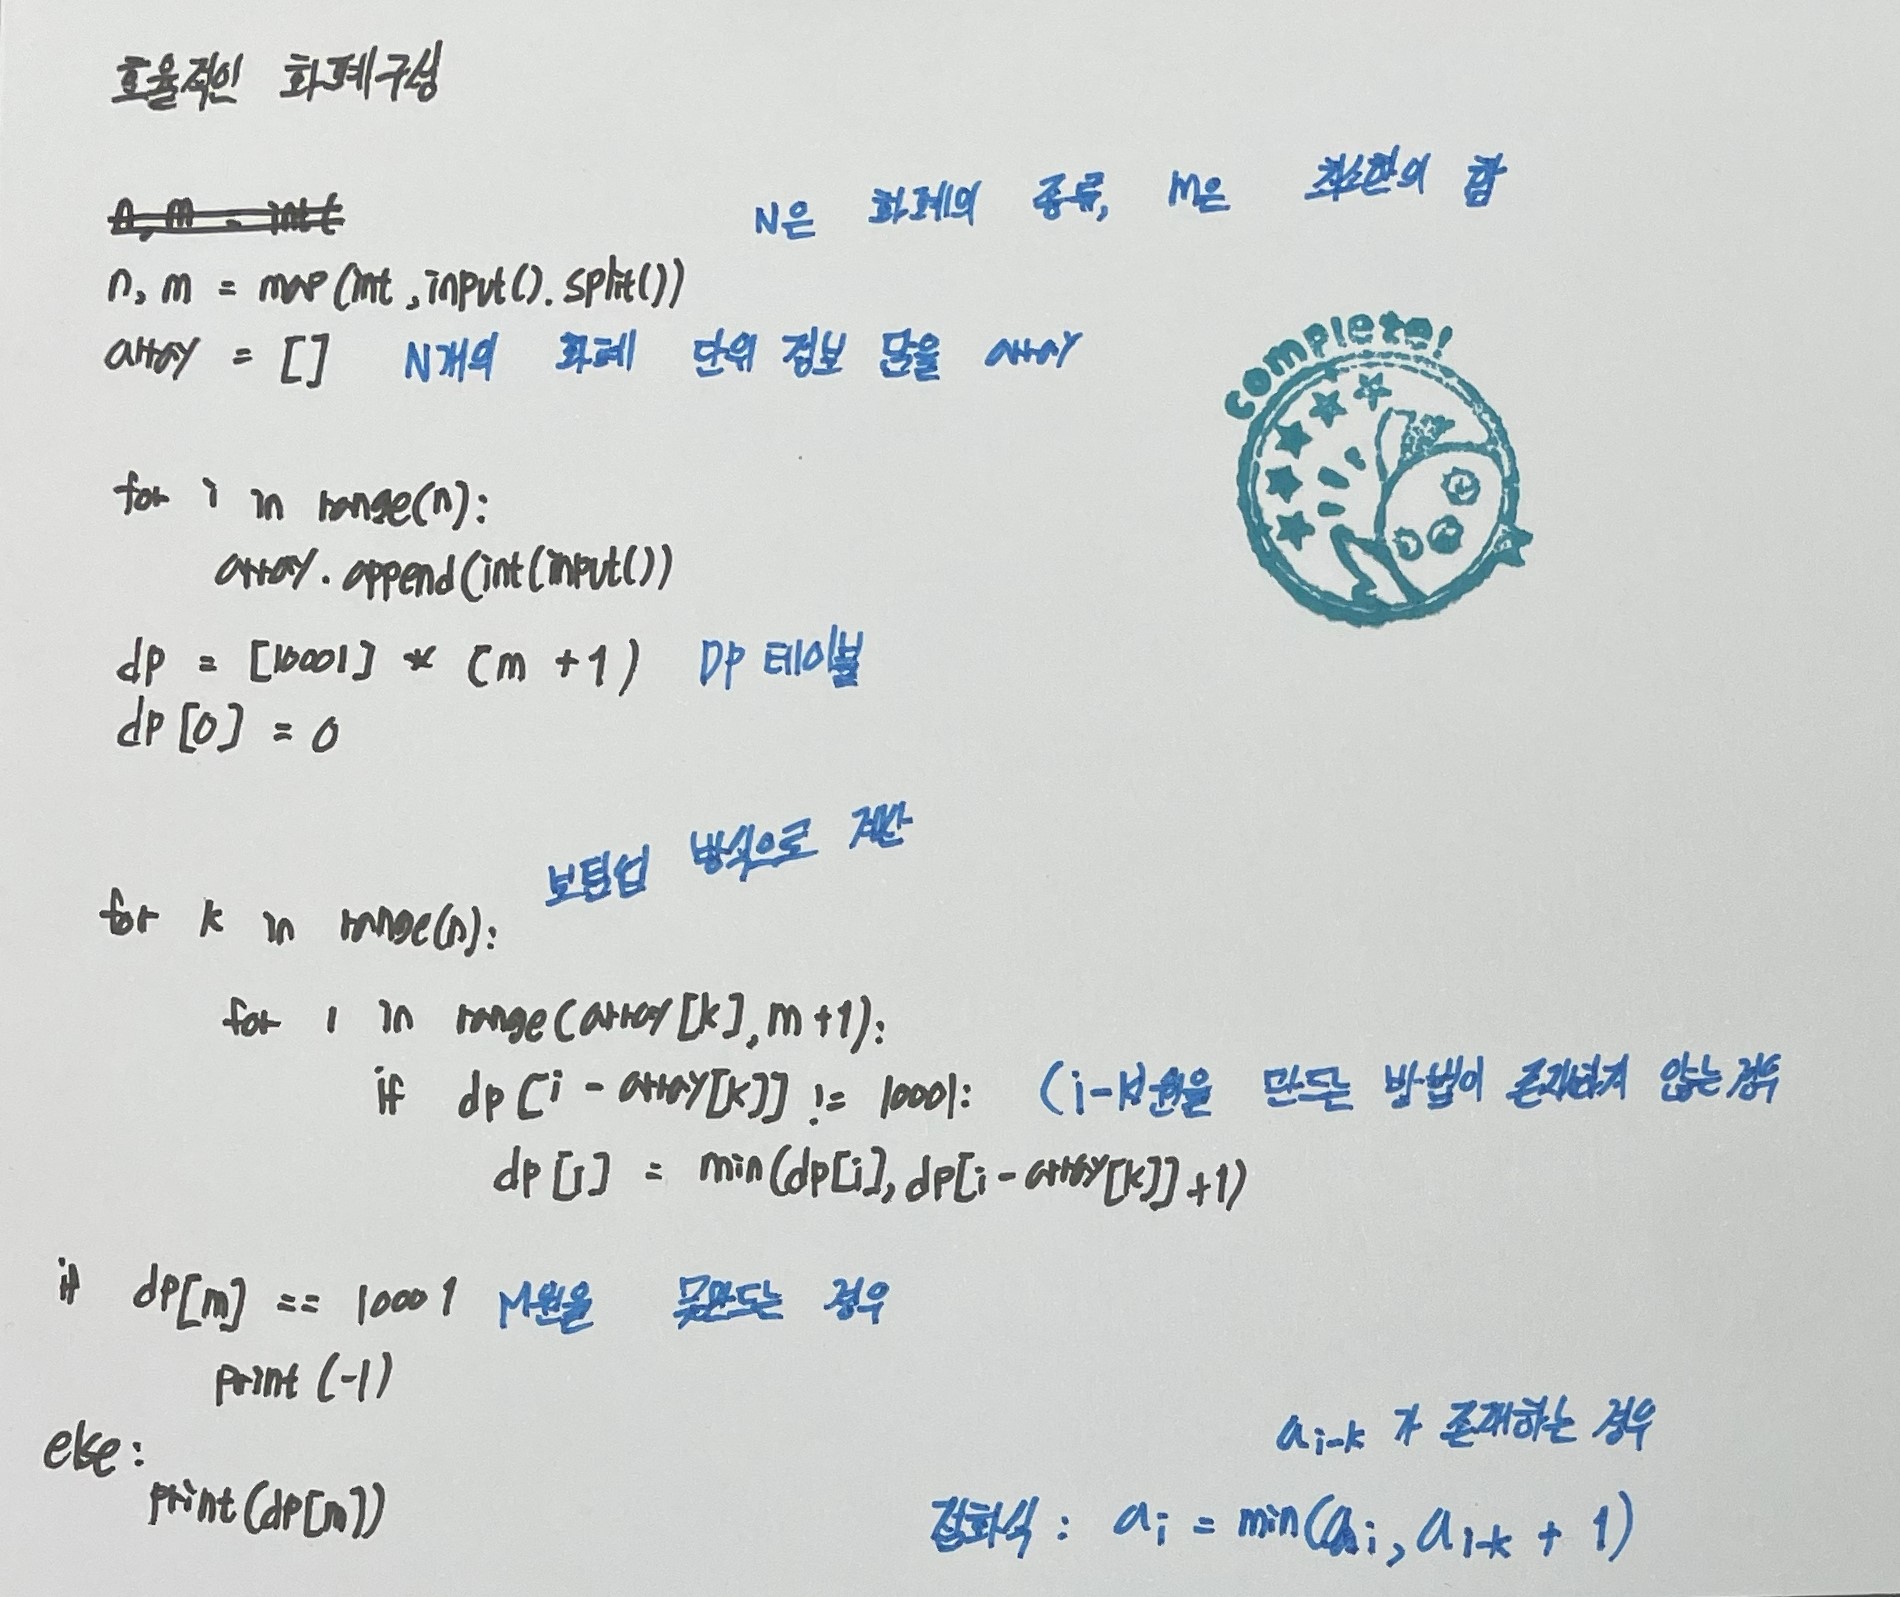 효율적인 화폐구성
n, m = int(
N은 화폐의 종류, M은 최소한의 합
n, m = map(int, input().split())
array = [] N개의 화폐 단위 정보 담을 array
complete!
for i in range(n):
array.append(int(input())
dp = [10001] * (m + 1) DP 테이블
dp[0] = 0
보텀업 방식으로 계산
for k in range(n):
for i in range(array[k], m+1):
if dp[i - array[k]] != 10001: (i-k)원을 만드는 방법이 존재하지 않는 경우
dp[i] = min(dp[i], dp[i - array[k]] +1)
if dp[m] == 10001 M원을 못만드는 경우
print(-1)
else:
print(dp[m])
a i-k 가 존재하는 경우
점화식 : a i = min(a i, a i-k + 1)